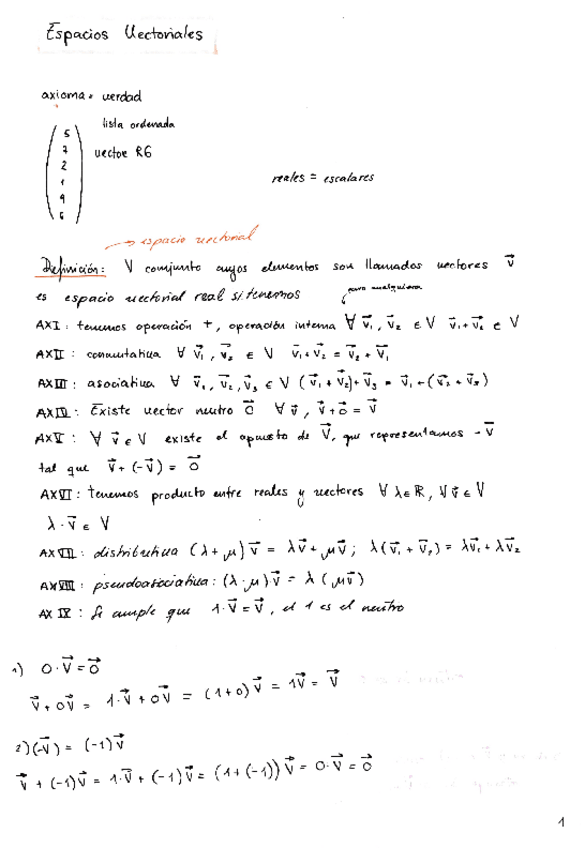 Espacios Vectoriales
axioma = verdad
lista ordenada
5
7
2
1
9
6
vector R6
reales = escalares
→ espacio vectorial
Definición: V conjunto cuyos elementos son llamados vectores v⃗
es espacio vectorial real si tenemos
para cualquiera
AXI: tenemos operación +, operación interna ∀ v⃗₁, v⃗₂ ∈ V v⃗₁+v⃗₂ ∈ V
AXII: conmutativa ∀ v⃗₁, v⃗₂ ∈ V v⃗₁+v⃗₂ = v⃗₂+v⃗₁
AXIII: asociativa ∀ v⃗₁, v⃗₂, v⃗₃ ∈ V (v⃗₁+v⃗₂)+v⃗₃ = v⃗₁+(v⃗₂+v⃗₃)
AXIV: Existe vector neutro 0⃗ ∀ v⃗, v⃗+0⃗ = v⃗
AXV: ∀ v⃗ ∈ V existe el opuesto de v⃗, que representamos -v⃗
tal que v⃗+(-v⃗) = 0⃗
AXVI: tenemos producto entre reales y vectores ∀ λ ∈ ℝ, ∀ v⃗ ∈ V
λ·v⃗ ∈ V
AXVII: distributiva (λ+μ)v⃗ = λv⃗+μv⃗; λ(v⃗₁+v⃗₂) = λv⃗₁+λv⃗₂
AXVIII: pseudoasociativa: (λ·μ)v⃗ = λ(μv⃗)
AX IX: Se cumple que 1·v⃗=v⃗, el 1 es el neutro
1) 0·v⃗=0⃗
v⃗+0v⃗ = 1·v⃗+0v⃗ = (1+0)v⃗ = 1v⃗ = v⃗
2) (-v⃗) = (-1)v⃗
v⃗+(-1)v⃗ = 1·v⃗+(-1)v⃗ = (1+(-1))v⃗ = 0·v⃗ = 0⃗
1